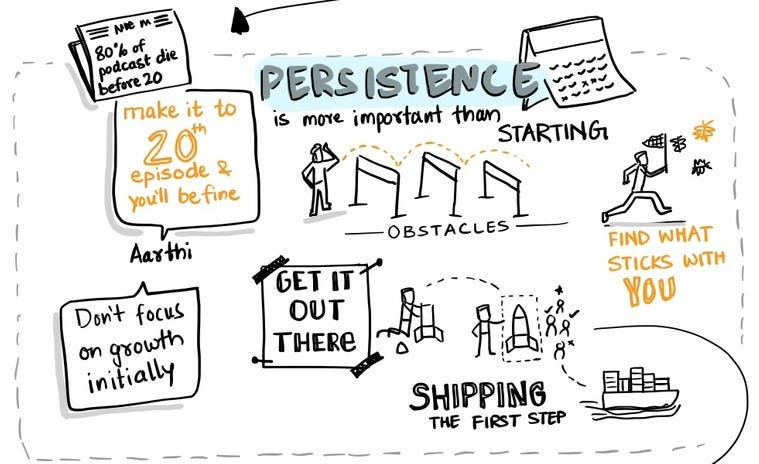 80% of
podcast die
before 20
make it to
20th
episode &
you'll be fine
Aarthi
Don't focus
on growth
initially
PERSISTENCE
is more important than
STARTING
OBSTACLES
FIND WHAT
STICKS WITH
YOU
GET IT
OUT
THERE
SHIPPING
THE FIRST STEP